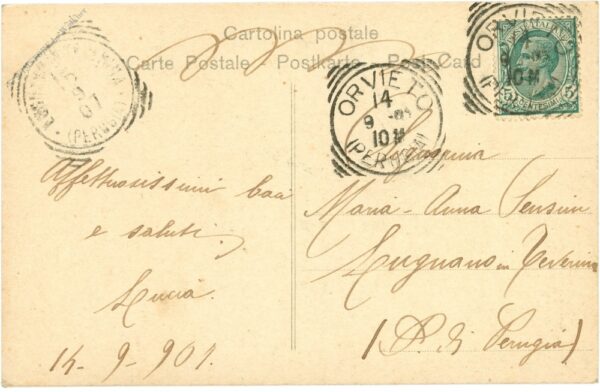 Cartolina postale
Carte Postale Postkarte Post-Card
ORVIETO
14
9
10 M
(PERUGIA)
ORVIETO
9
10 M
(PER
POSTE ITALIANE
5 CENTESIMI 5
(PERUGIA)
Affettuosissimi baci
e saluti.
Lucia.
14-9-901.
Signorina
Maria-Anna Sensini
Lugnano in Teverina
(P. di Perugia)